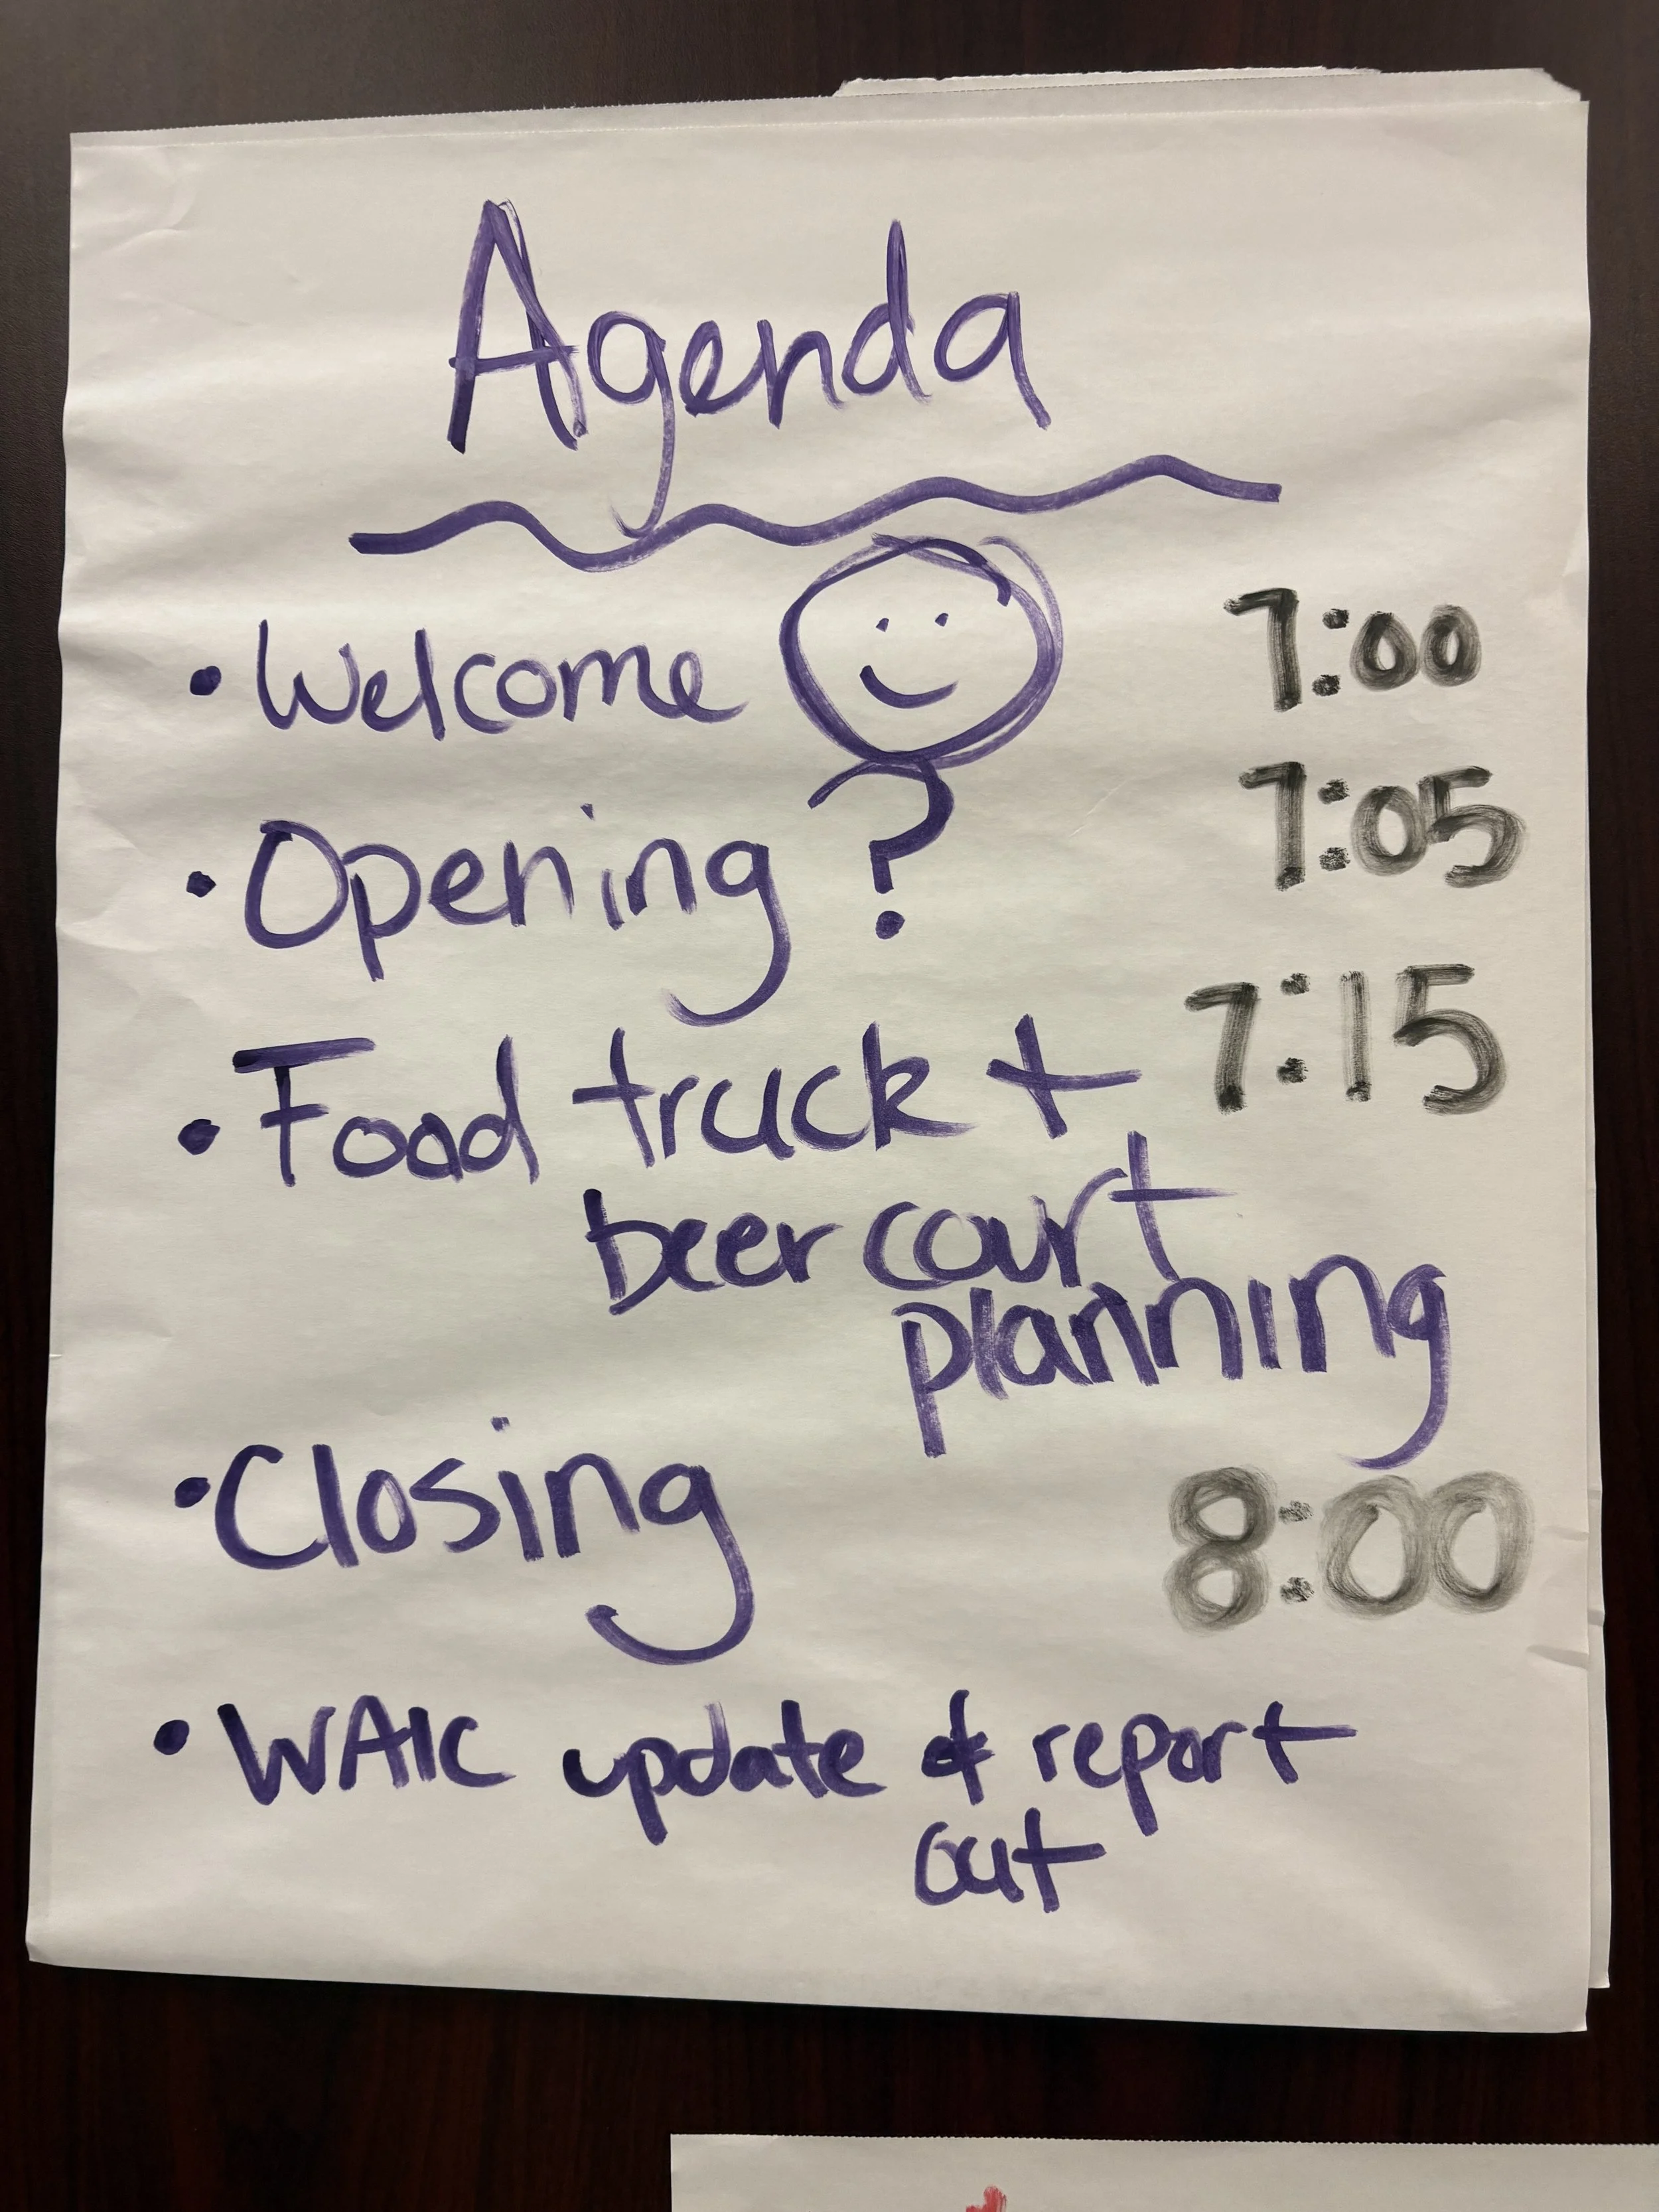 Agenda
• Welcome 7:00
• Opening ? 7:05
• Food truck + 7:15
beer court
planning
• Closing 8:00
• WAIC update & report
out